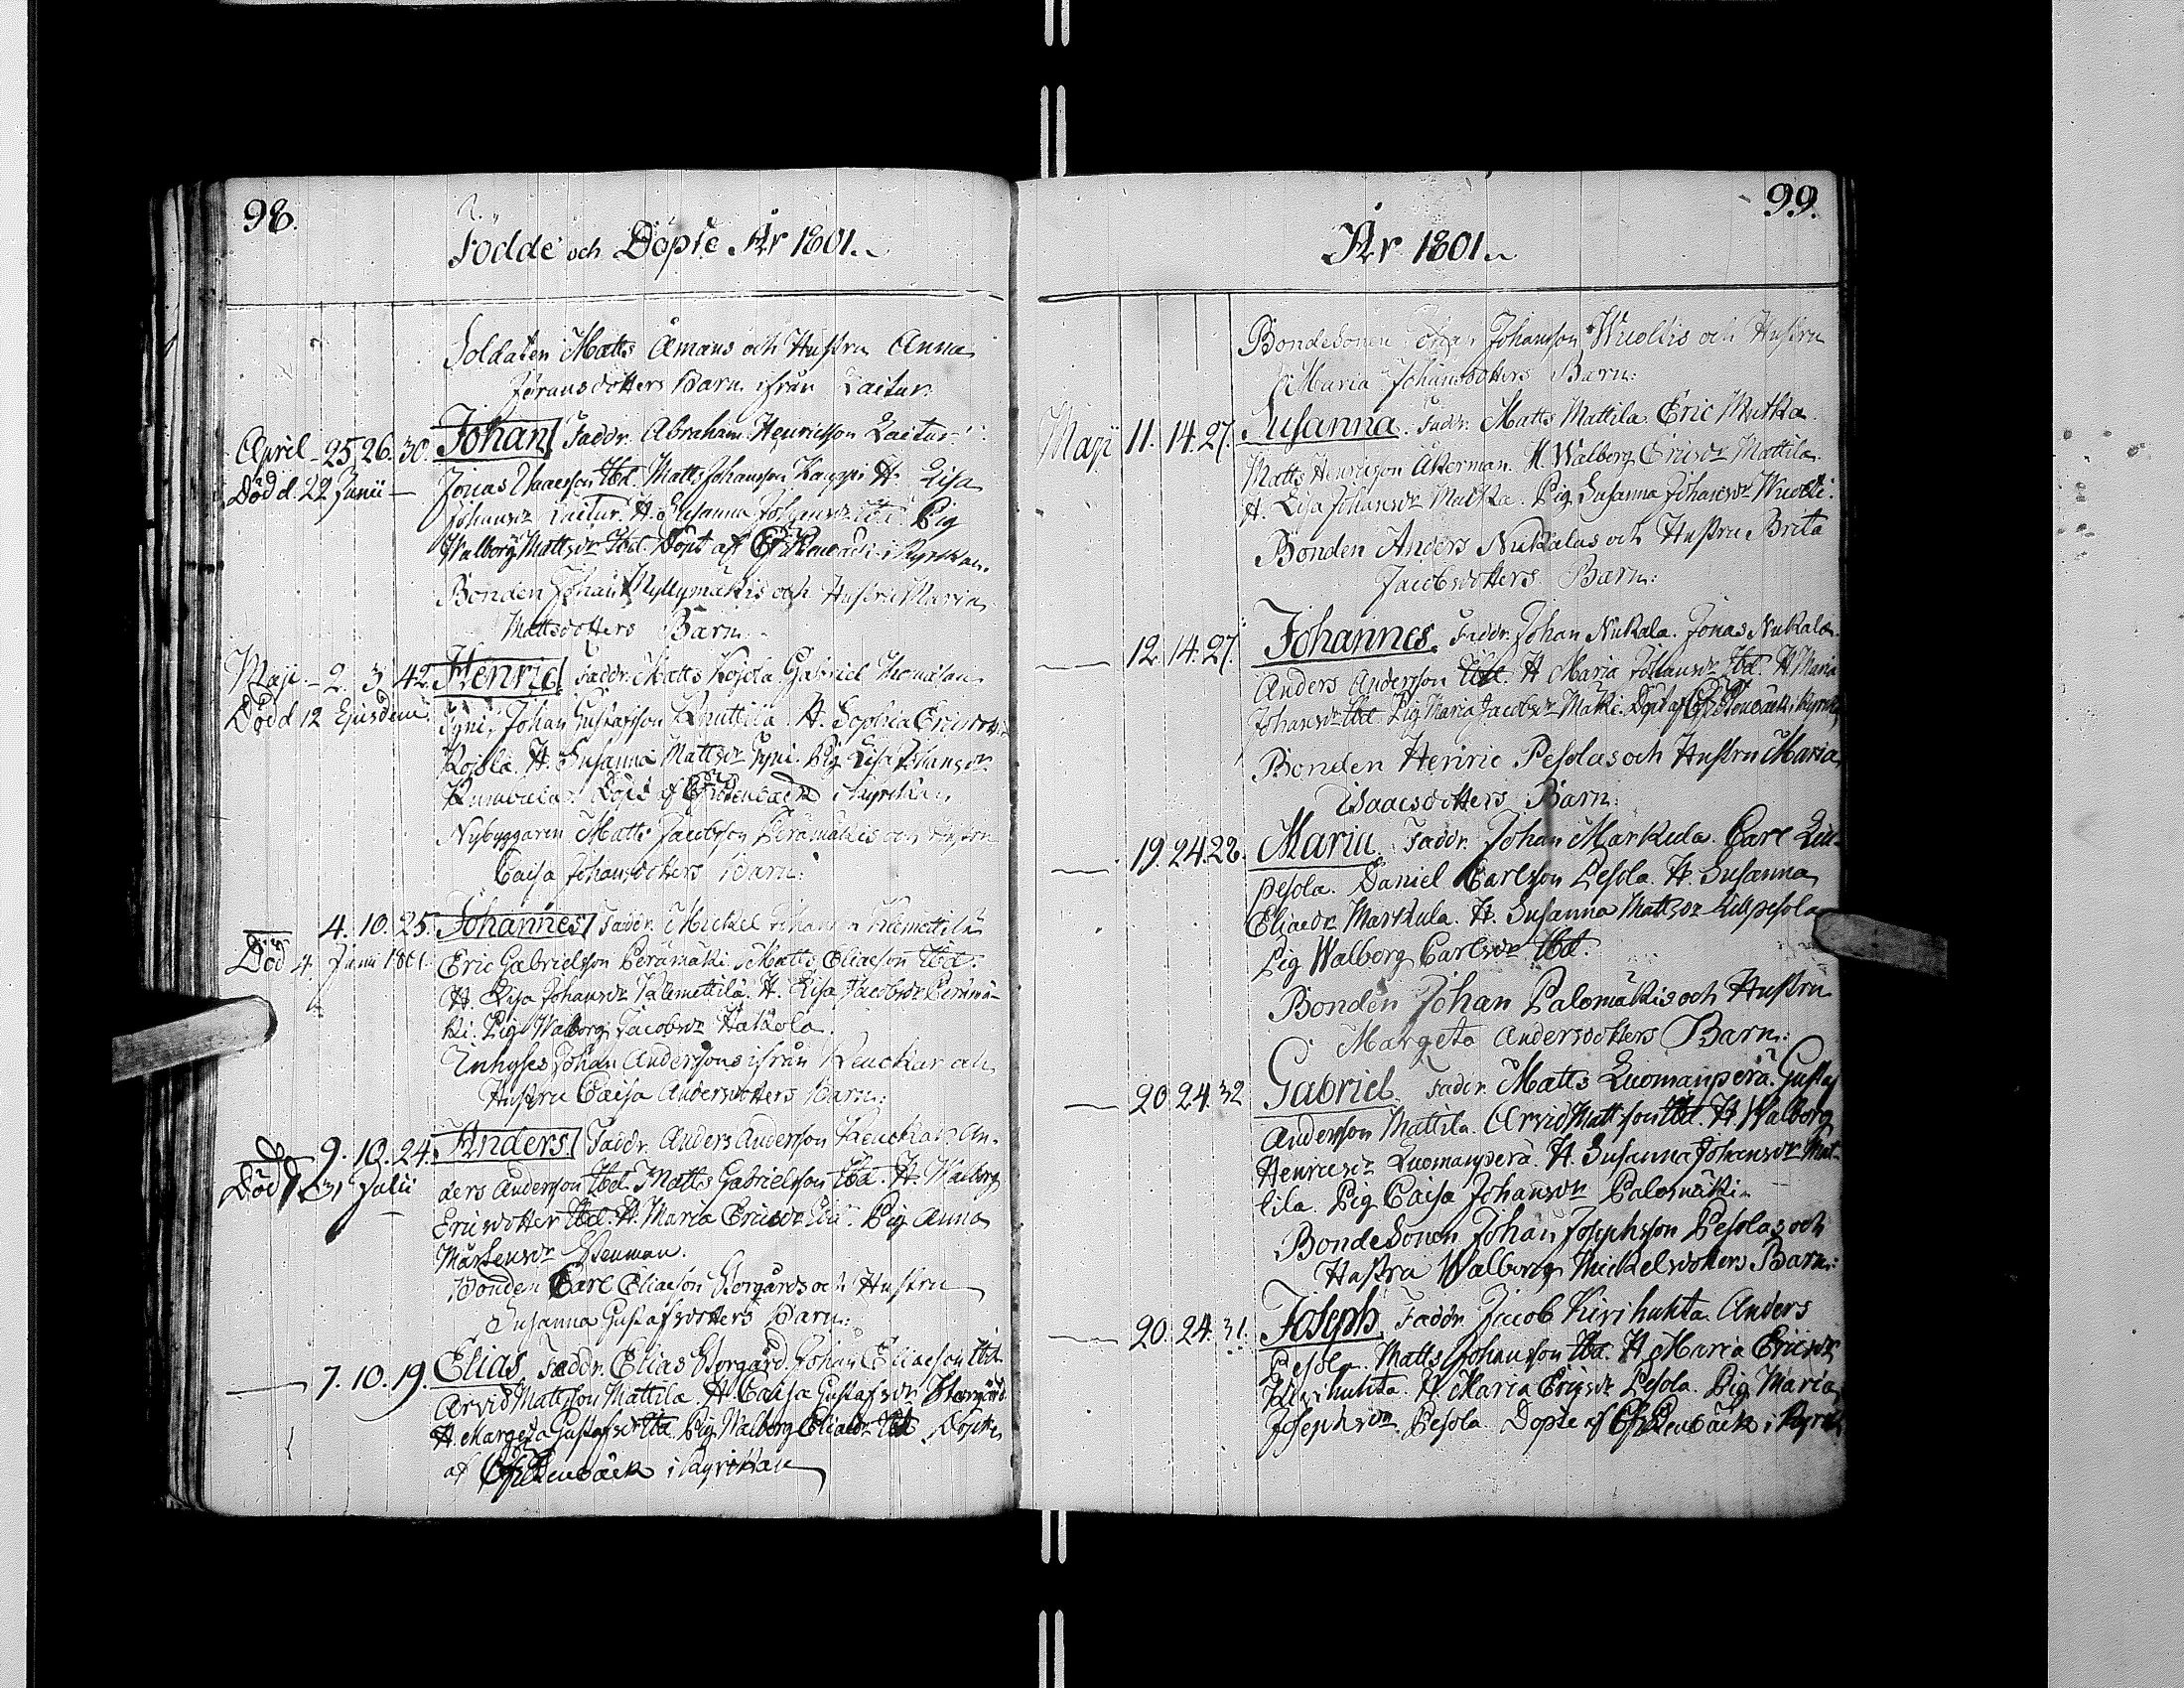 98.
Födde och Döpte År 1801.
Soldaten Matts Åmans och Hustru Anna
Jöransdotters Barn ifrån Laitur.
April 25 26. 30. Johan Faddr. Abraham Henricsson Laitur.
Död d. 22 Junii Jonas Isaacsson Ibd. Matts Johansson Kauppi H. Lisa
Johansdr Laitur. H. Susanna Johansdr Ibd. Pig
Walborg Mattsdr Ibd. Döpt af Eh. Renbäck i Kyrckan.
Bonden Johan Myllymäkis och Hustru Maria
Mattsdotters Barn.
Maji 2. 3 42. Henric Faddr. Matts Kojola Gabriel
Död d. 12 Ejusdem Tyni. Johan Gustafsson Knuttila. H. Sophia Ericsdotter
Koisla. H. Susanna Mattsdr Tyni. Pig Lisa Johansdr
Döpt af i Kyrckan
Nybyggaren Matts Jacobsson Perämäkis och Hustru
Caisa Johansdotters Barn:
4. 10. 25. Johannes Faddr. Mickel
Död 4 Junii 1801. Eric Gabrielsson Perämäki Matts Eliaeson Ibd.
H. Lisa Johansdr H. Lisa Jacobsdr Perämä-
ki. Pig Walborg Jacobsdr Hakaola.
Inhyses Johan Anderssons ifrån och
Hustru Caisa Andersdotters Barn:
9. 10. 24. Anders Faddr. Anders Andersson An-
Död d 31 Julii ders Andersson Ibd. Matts Gabrielsson Ibd. H. Walborg
Ericsdotter Ibd. H. Maria Ericsdr Ibd. Pig Anna
Mårtensdr Stenman.
Bonden Carl Eliaeson Storgårds och Hustru
Susanna Gustafsdotters Barn:
7. 10. 19. Elias Faddr. Elias Storgård. Johan Eliaeson Ibd.
Arvid Mattsson Mattila H. Caisa Gustafsdr Storgård
H. Margeta Gustafsdr Ibd. Pig Walborg Eliaedr Ibd. Döptes
af i Kyrckan
99.
År 1801.
Bondesonen Johan Johansson Wuoltis och Hustru
Maria Johansdotters Barn:
Maji 11. 14. 27. Susanna. Faddr. Matts Mattila. Eric Mutka.
Matts Henricsson Åkerman. H. Walborg Ericsdr Mattila.
H. Lisa Johansdr Mutka. Pig Susanna Johansdr Wuolti.
Bonden Anders Nukalas och Hustru Brita
Jacobsdotters Barn:
12. 14. 27. Johannes. Faddr. Johan Nukala. Jonas Nukala.
Anders Andersson Ibd. H Maria Johansdr Ibd. H Maria
Johansdr Ibd. Pig Maria Jacobsdr Mäkki. Döpt af i Kyrck
Bonden Henric Pesolas och Hustru Maria
Isaacsdotters Barn:
19. 24. 28. Maria. Faddr. Johan Markula. Carl Lill-
pesola. Daniel Carlsson Pesola. H. Susanna
Eliaedr Markula. H. Susanna Mattsdr Lillpesola
Pig Walborg Carlsdr Ibd.
Bonden Johan Palomäkis och Hustru
Margeta Andersdotters Barn:
20. 24. 32 Gabriel. Faddr. Matts Luomanperä. Gustaf
Andersson Mattila. Arvid Mattsson Ibd. H. Walborg
Henricsdr Luomanperä. H. Susanna Johansdr Mat-
tila. Pig Caisa Johansdr Palomäki.
Bondesonen Johan Josephsson Pesolas och
Hustru Walborg Mickelsdotters Barn:
20. 24. 31. Joseph, Faddr. Jacob Kirihukta Anders
Pesola. Matts Johansson Ibd. H Maria Ericsdr
Kirihukta. H. Maria Ericsdr Pesola. Pig Maria
Josephsdr. Pesola. Döpte af i Kyrck